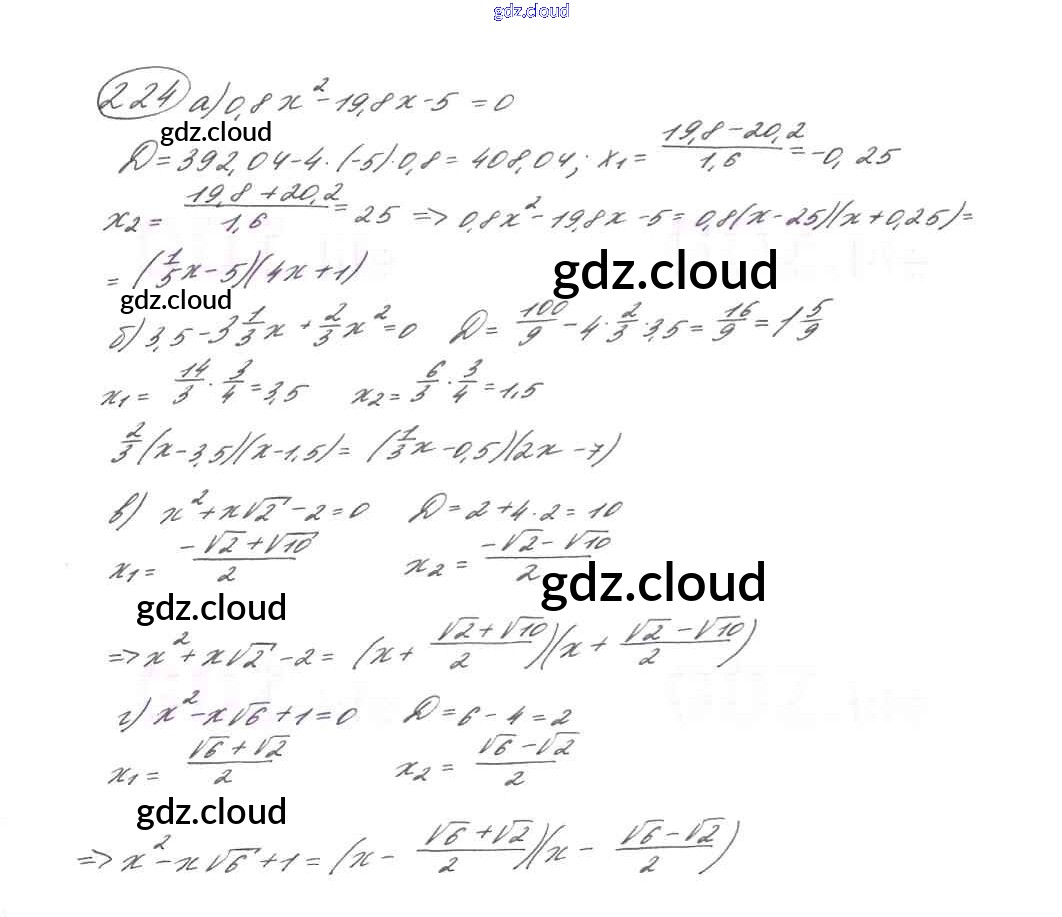 gdz.cloud
224 а) 0,8x² - 19,8x - 5 = 0
gdz.cloud
D = 392,04 - 4 · (-5) · 0,8 = 408,04; x₁ = (19,8 - 20,2)/1,6 = -0,25
x₂ = (19,8 + 20,2)/1,6 = 25 => 0,8x² - 19,8x - 5 = 0,8(x - 25)(x + 0,25) =
= (1/5x - 5)(4x + 1)
gdz.cloud
gdz.cloud
б) 3,5 - 3 1/3x + 2/3x² = 0 D = 100/9 - 4 · 2/3 · 3,5 = 16/9 = 1 5/9
x₁ = 14/3 · 3/4 = 3,5 x₂ = 6/3 · 3/4 = 1,5
2/3(x - 3,5)(x - 1,5) = (1/3x - 0,5)(2x - 7)
в) x² + x√2 - 2 = 0 D = 2 + 4 · 2 = 10
x₁ = (-√2 + √10)/2 x₂ = (-√2 - √10)/2
gdz.cloud
gdz.cloud
=> x² + x√2 - 2 = (x + (√2 + √10)/2)(x + (√2 - √10)/2)
г) x² - x√6 + 1 = 0 D = 6 - 4 = 2
x₁ = (√6 + √2)/2 x₂ = (√6 - √2)/2
gdz.cloud
=> x² - x√6 + 1 = (x - (√6 + √2)/2)(x - (√6 - √2)/2)